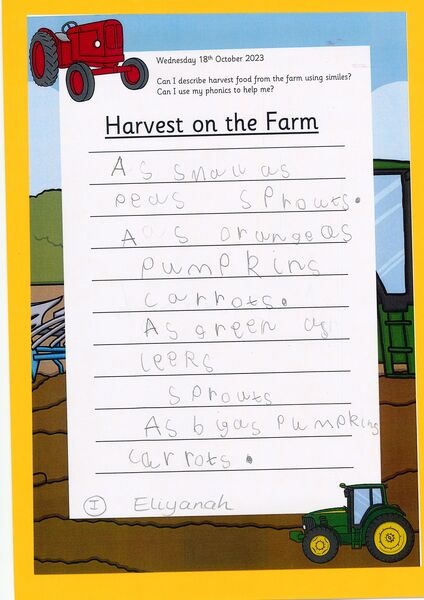 Wednesday 18th October 2023
Can I describe harvest food from the farm using similes?
Can I use my phonics to help me?
Harvest on the Farm
As smau as
peas sprouts.
A as orangeas
pumpkins
carrots.
As green as
leers
sprouts
As bigas pumpkins
carrots.
I Eliyanah